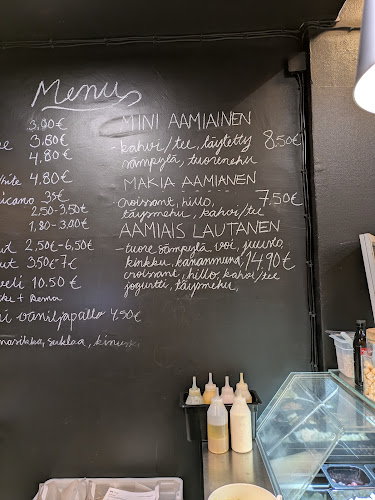 Menu
3.90€
3.80€
4.80€
4.80€
35€
2.50-3.50€
1.80-3.00€
2,50€-6,50€
3.50€-7€
10.50€
+ Rema
vaniljapallo 4.90€
suklaa, kinuski
MINI AAMIAINEN
-kahvi/tee, täytetty 8.50€
sämpylä, tuorenehu
MAKIA AAMIANEN
croissant, hillo, 7.50€
täysmehu, kahvi/tee
AAMIAIS LAUTANEN
-tuore sämpylä, voi, juusto,
kinkku, kananmuna, 14.90€
croissant, hillo, kahvi/tee
jogurtti, täysmehu,